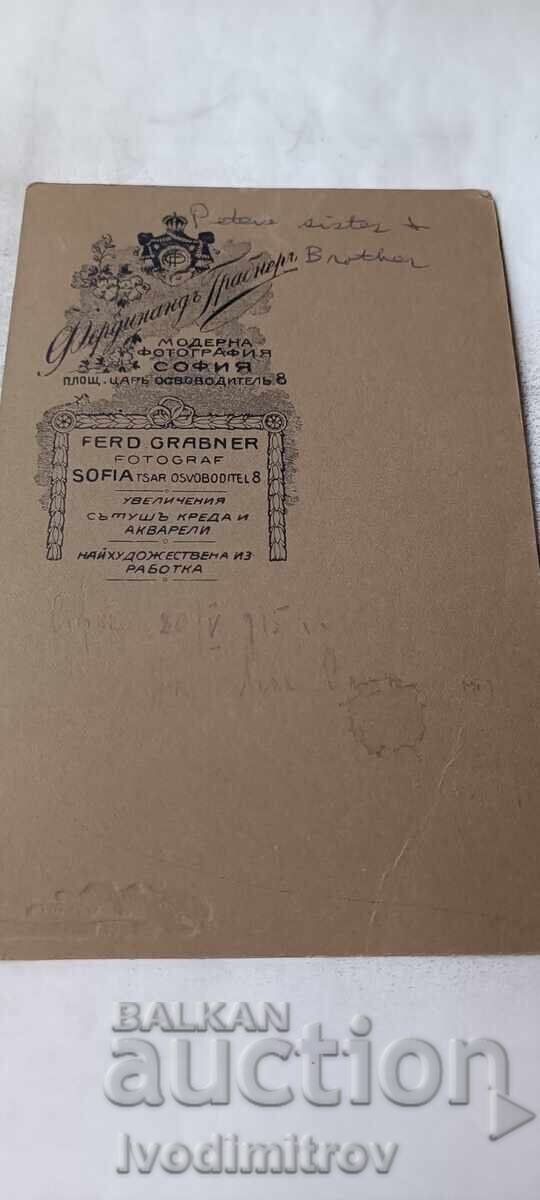 Petere sister &
Brother
Фердинандъ Грабнеръ
МОДЕРНА
ФОТОГРАФИЯ
СОФИЯ
ПЛОЩ. ЦАРЬ ОСВОБОДИТЕЛЬ 8
FERD GRABNER
FOTOGRAF
SOFIA TSAR OSVOBODITEL 8
УВЕЛИЧЕНИЯ
СЪ ТУШЪ КРЕДА И
АКВАРЕЛИ
НАЙХУДОЖЕСТВЕНА ИЗ
РАБОТКА
20/V 915
BALKAN
auction
Ivodimitrov